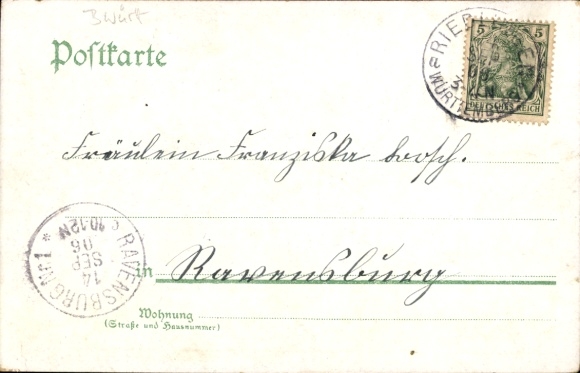 3 Württ
Postkarte
5 5
RIEDL
WÜRTTEMBERG
DEUTSCHES REICH
Fräulein Franziska Bosch.
RAVENSBURG Nr.1 *
14
SEP
06
10-12N
in Ravensburg
Wohnung
(Straße und Hausnummer)